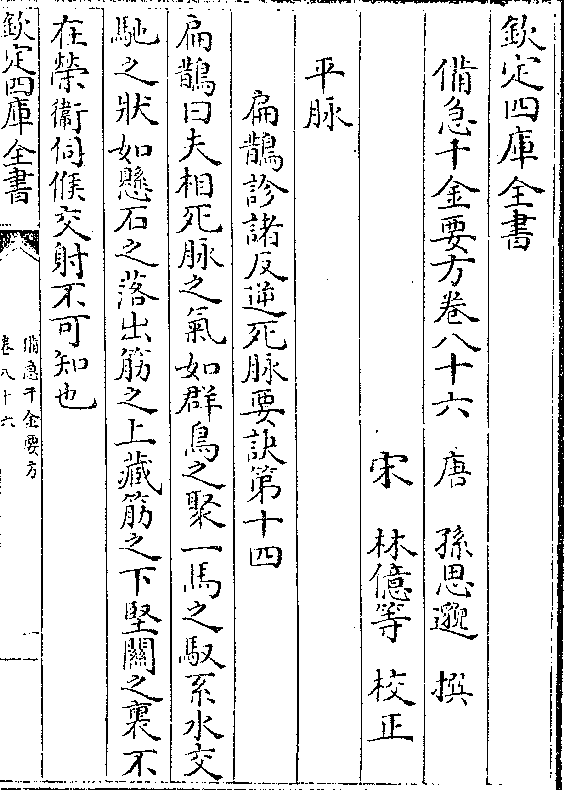 欽定四庫全書
備急千金要方卷八十六　唐　孫思邈　撰
宋　林億等　校正
平脉
扁鵲診諸反逆死脉要訣第十四
扁鵲曰夫相死脉之氣如群鳥之聚一馬之馭系水交
馳之狀如懸石之落出筋之上藏筋之下堅關之裏不
在榮衞伺候交射不可知也
欽定四庫全書
備急千金要方
卷八十六
一